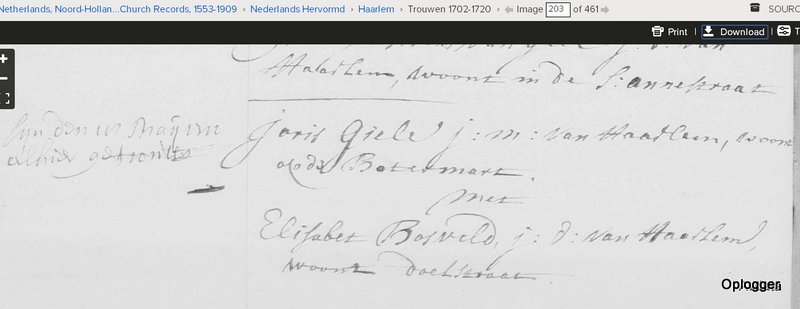 Netherlands, Noord-Hollan...Church Records, 1553-1909 › Nederlands Hervormd › Haarlem › Trouwen 1702-1720 › Image 203 of 461
SOURC
Print | Download | T
Haarlem, woont in de S: annestraat
Sijn den 10 Maij 1711
alhier getrouwt
Joris Giele j: m: van Haarlem, woont
op de Botermart.
met
Elisabet Bosveld, j: d: van Haarlem,
woont doelstraat
Oplogger